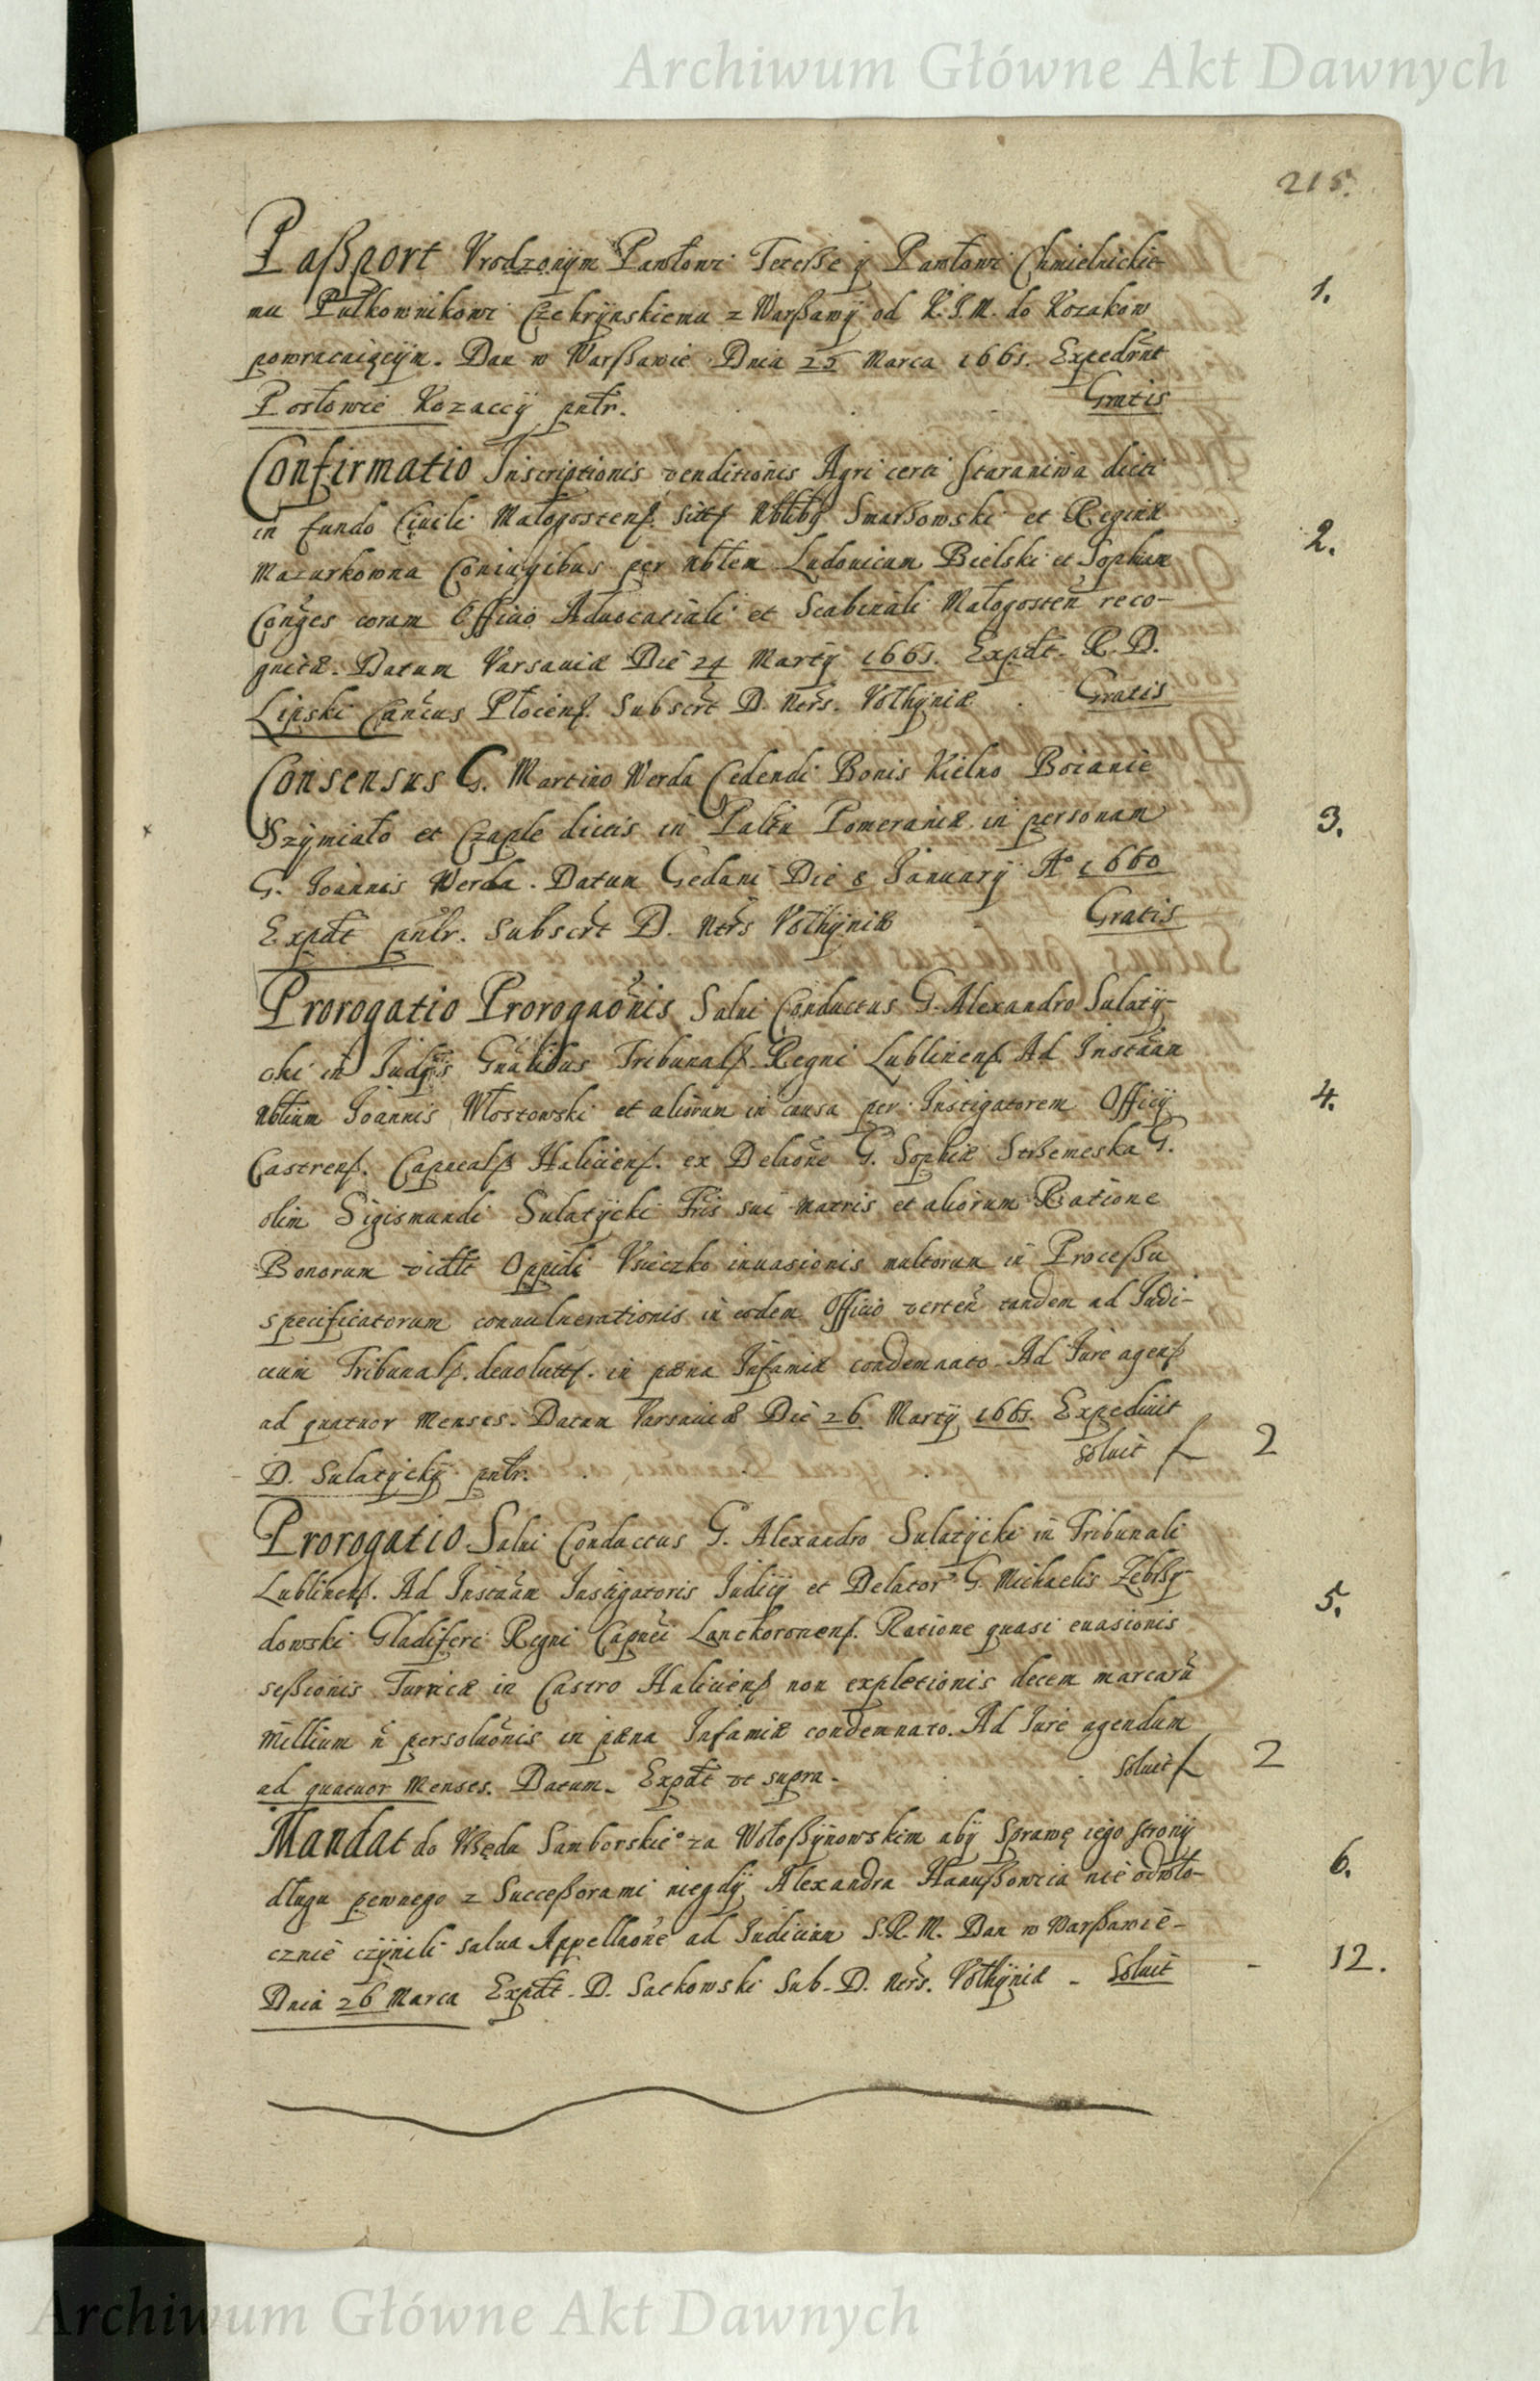 Archiwum Główne Akt Dawnych
215.
Paßport Vrodzonÿm Pawłowi Teterße ÿ Pawłowi Chmielnickie-
mu Pułkownikowi Czehrÿnskiemu z Warßawÿ od K.J.M. do Kozakow
powracaiącÿm. Dan w Warßawie Dnia 25 Marca 1661. Expedrnt
Posłowie Kozaccÿ pntr. Gratis
1.
Confirmatio Inscriptionis venditionis Agri certi Staraniwa dicti
in fundo Ciuili Małogostens. Nbtibg Smarßowski et Reginæ
Mazurkowna Coniugibus per Nbtem Ludouicum Bielski et Sophiam
Conges coram Officio Aduocatiali et Scabinali Małogosten reco-
gnitæ. Datum Varsauiæ Die 24 Martÿ 1661. Expdt R. D.
Lipski Cancus Płocens. Subscrt D. Ners. Vołhÿniæ Gratis
2.
Consensus G. Martino Werda Cedendi Bonis Kielno Boianie
Szÿmiało et Czaple dictis in Paltu Pomeraniæ in personam
G. Joannis Werda. Datum Gedani Die 8 Januarÿ Aº 1660
Expdt pntr. Subscrt D. Ners Vołhÿniæ Gratis
3.
Prorogatio Prorogaonis Salui Conductus G. Alexandro Sulatÿ-
cki in Judÿs Gnalibus Tribunals. Regni Lublinens. Ad Instaan
Nbtium Joannis Włostowski et aliorum in causa per Instigatorem Officÿ
Castrens. Capneals Haliciens. ex Delaone G. Sophiæ Strßemeska G.
olim Sigismundi Sulatÿcki Fris sui Matris et aliorum Ratione
Bonorum vidlt Oppidi Vsieczko inuasionis multorum in Proceßu
specificatorum conuulnerationis in eodem Officio verten tandem ad Judi-
cium Tribunals. deuoluts. in pæna Infamiæ condemnato. Ad Jure agens
ad quatuor Menses. Datum Varsauiæ Die 26 Martÿ 1661. Expediuit
D. Sulatÿckÿ pntr. soluit f 2
4.
Prorogatio Salui Conductus G. Alexandro Sulatÿcki in Tribunali
Lublinens. Ad Instaan Instigatoris Judicÿ et Delator G. Michaelis Zebrßÿ-
dowski Gladiferi Regni Capnei Lanckoronens. Ratione quasi euasionis
seßionis Turricæ in Castro Haliciens non expletionis decem marcarũ
Millium ñ persoluõnis in pæna Infamiæ condemnato. Ad Jure agendum
ad quatuor Menses. Datum. Expdt vt supra. soluit f 2
5.
Mandat do Vrßędu Samborskieº za Wołoßÿnowskim abÿ Sprawę iego stronÿ
długu pewnego z Succeßorami niegdÿ Alexandra Hanußowica nie odwło-
cznie czÿnili salua Appellaone ad Judicium S.R.M. Dan w Warßawie
Dnia 26 Marca Expdt D. Sackowski Sub. D. Ners. Vołhÿniæ - Soluit - 12.
6.
Archiwum Główne Akt Dawnych